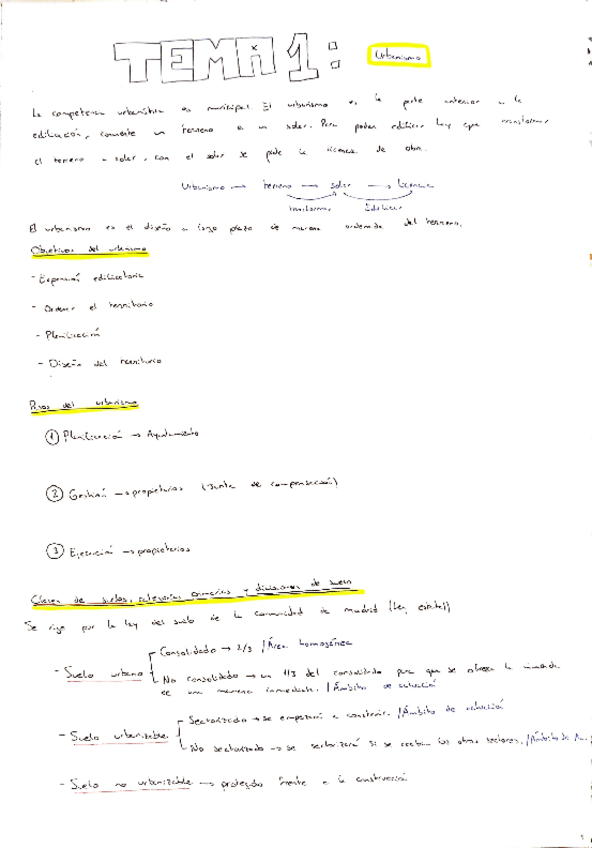 TEMA 1: Urbanismo
La competencia urbanística es municipal. El urbanismo es la parte anterior a la
edificación, convierte un terreno en un solar. Para poder edificar hay que transformar
el terreno a solar, con el solar se pide la licencia de obra.
Urbanismo → terreno → solar → licencia
transformar Edificar
El urbanismo es el diseño a largo plazo de manera ordenada del terreno.
Objetivos del urbanismo
- Expansión edificatoria
- Ordenar el territorio
- Planificación
- Diseño del territorio
Pasos del urbanismo
① Planificación → Ayuntamiento
② Gestión → propietarios (Junta de compensación)
③ Ejecución → propietarios
Clases de suelos, categorías primarias y divisiones de suelo
Se rige por la ley del suelo de la comunidad de madrid (Ley estatal)
- Suelo urbano
Consolidado → 2/3 /Área homogénea
No consolidado → un 1/3 del consolidado para que se ofrezca la vivienda
de una manera inmediata. /Ámbito de actuación
- Suelo urbanizable
Sectorizado → se empezará a construir. /Ámbito de actuación
No sectorizado → se sectorizará si se recibn los otros sectores. /Ámbito de A..
- Suelo no urbanizable → protegido frente a la construcción